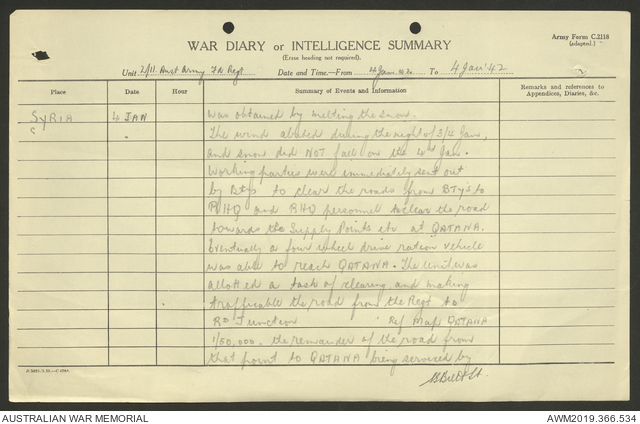 Army Form C.2118
(adapted.)
WAR DIARY or INTELLIGENCE SUMMARY
(Erase heading not required).
Unit 2/11. Aust Army Fd Regt Date and Time—From Jan. To 4 Jan '42
Place Date Hour Summary of Events and Information Remarks and references to
Appendices, Diaries, &c.
SYRIA 4 JAN was obtained by melting the snow.
The wind abated during the night of 3/4 Jan,
and snow did NOT fall on the 4th Jan.
Working parties were immediately sent out
by Btys to clear the roads from BTYs to
RHQ and RHQ personnel to clear the road
towards the Supply Points etc at QATANA.
Eventually a four wheel drive ration vehicle
was able to reach QATANA. The unit was
allotted a task of clearing and making
trafficable the road from the Regt to
Rd Junction Ref Map QATANA
1/50,000. the remainder of the road from
that point to QATANA being serviced by
AUSTRALIAN WAR MEMORIAL AWM2019.366.534